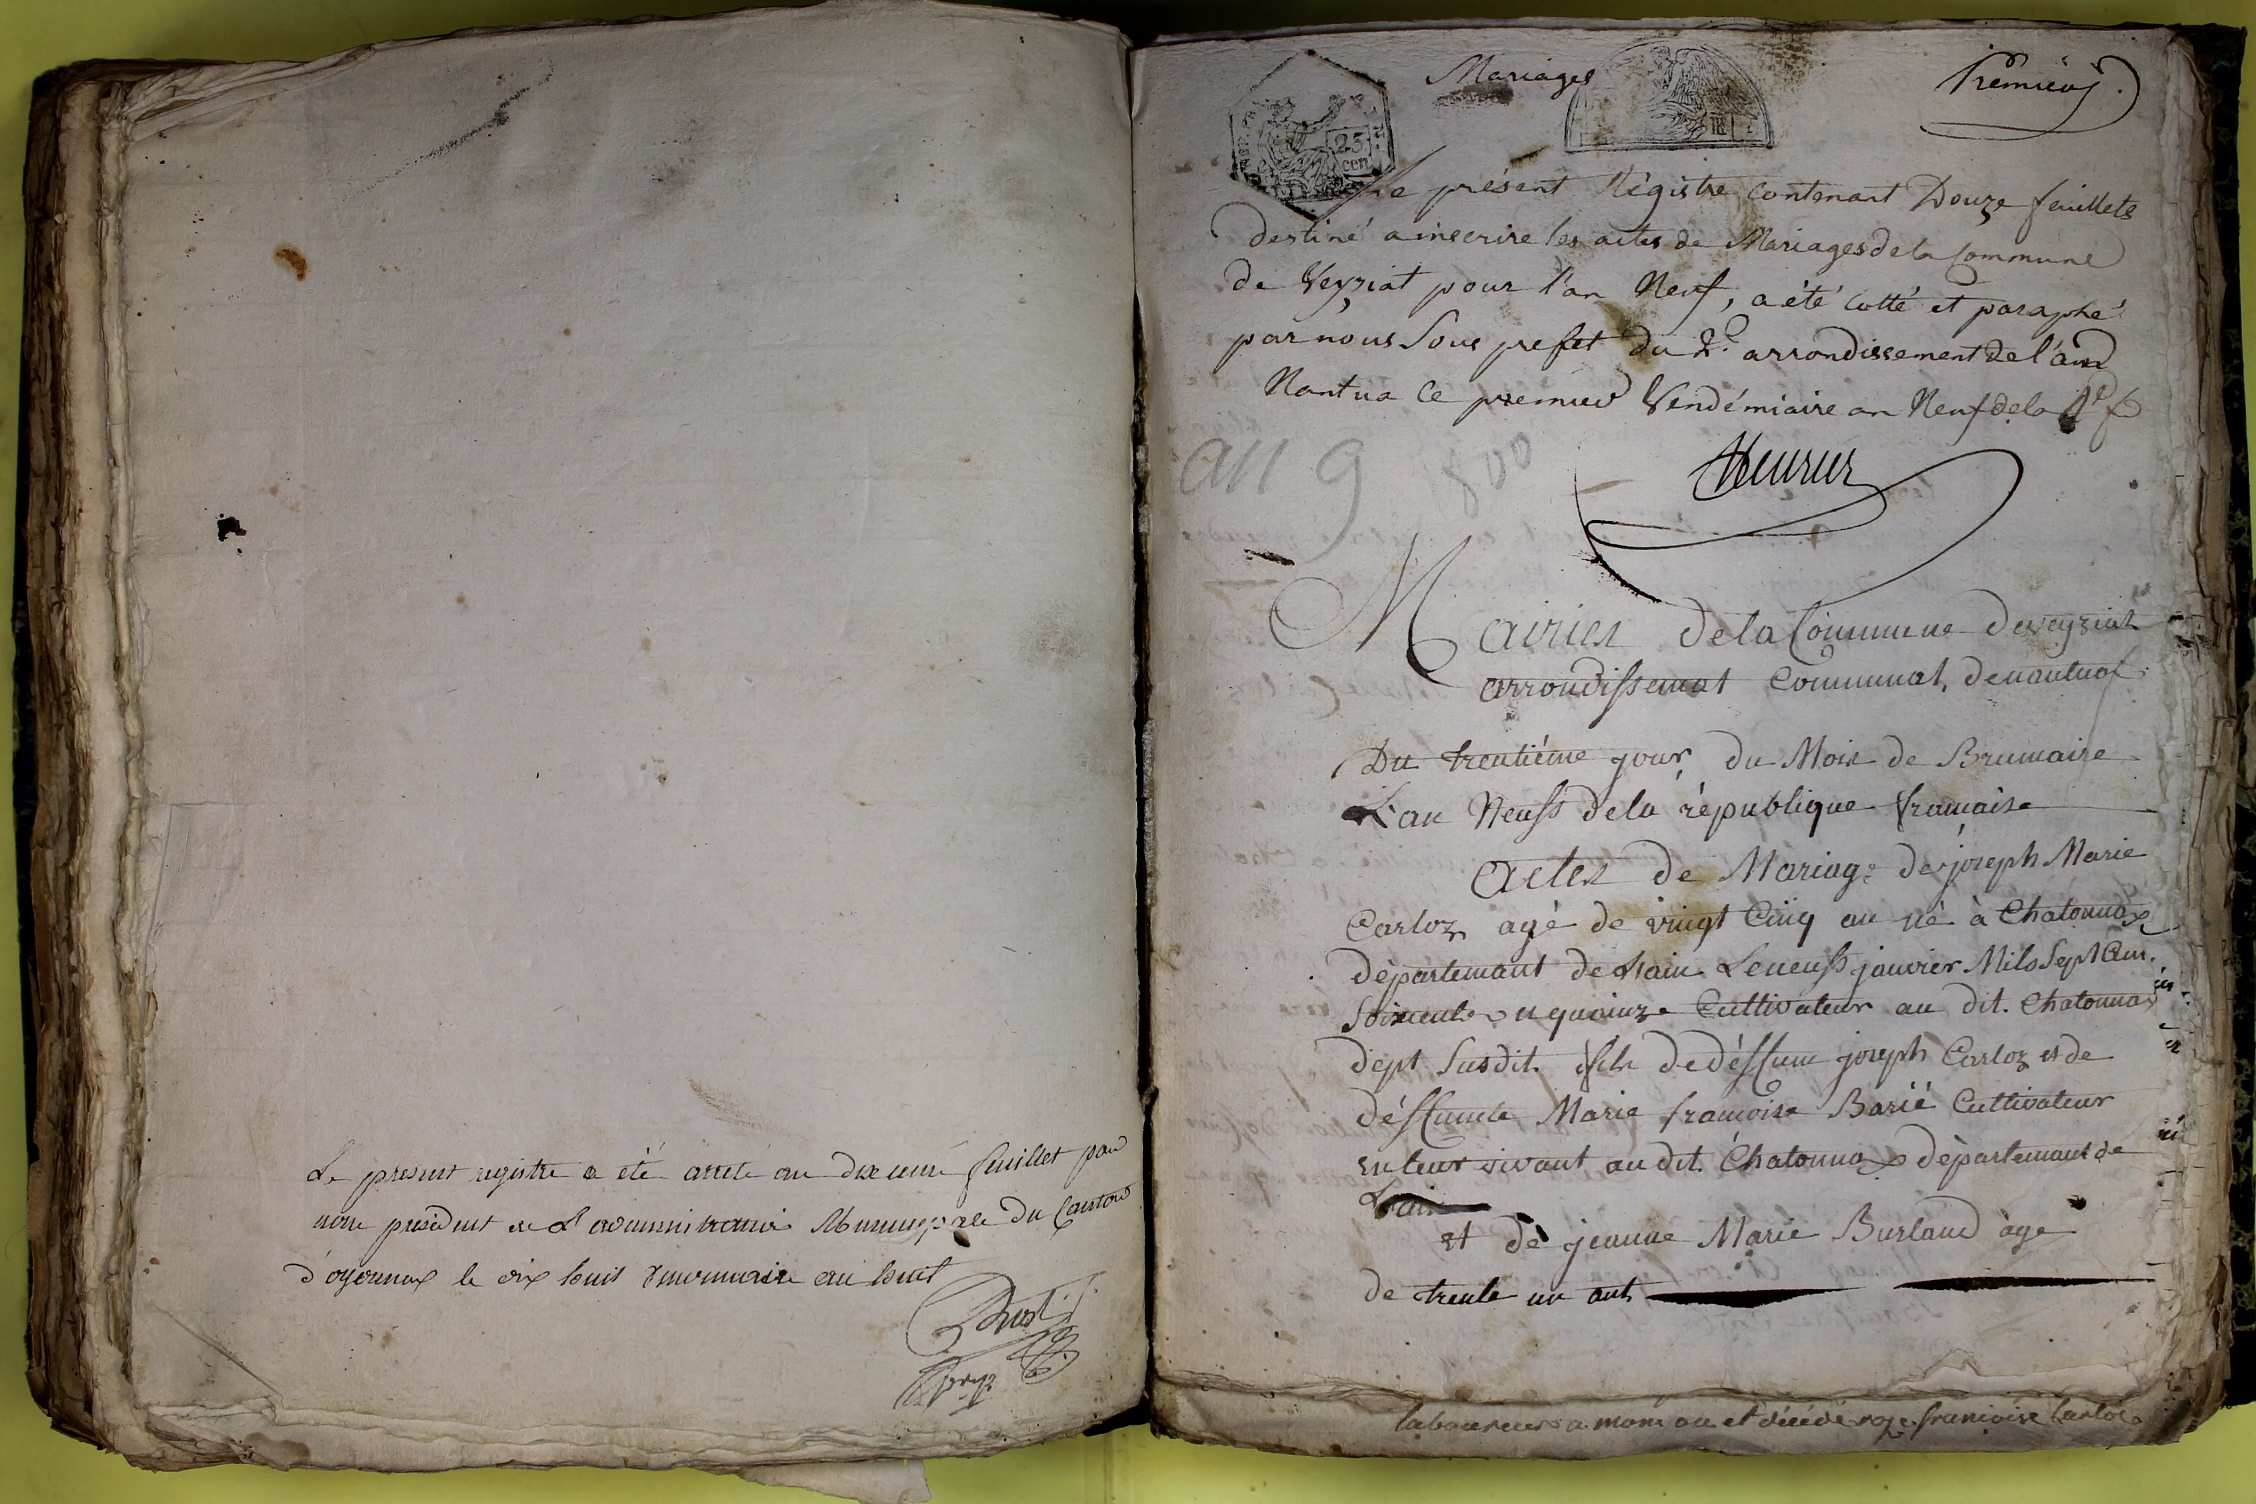 Le present registre a été arreté au dix neuf feuillet par
nous président de L'administration Municipale du Canton
d'oyonnax le dix huit an huit
Mariages
Premier
25
cen
Le présent Régistre contenant Douze feuillets
destiné a inscrire les actes de Mariages de la Commune
de Veyziat pour l'an Neuf, a été cotté et paraphé
par nous Sous prefet du 2e. arrondissement de l'ain
Nantua Ce premier Vendémiaire an Neuf de la
an 9 1800
Mairies de la Commune de veyziat
arrondissemat Communal, de nantua
Du trentiéme jour du Mois de Brumaire
L'an Neuf de la république francaise
Actes de Mariage de joseph Marie
Carloz agé de vingt Cinq an né à Chatonnax
départemant de Lain Le neuf janvier Mils Sept Cen
Soixente et quainze Cultivateur au dit. Chatonnax
dépt Susdit. fils de défſunt joseph Carloz et de
défſunte Marie francoise Barié Cultivateur
en leur vivant au dit. Chatonnax départemant de
Lain
et de jeanne Marie Burlaud age
de trente un ant
laboureur a et décédé francoise Carloz